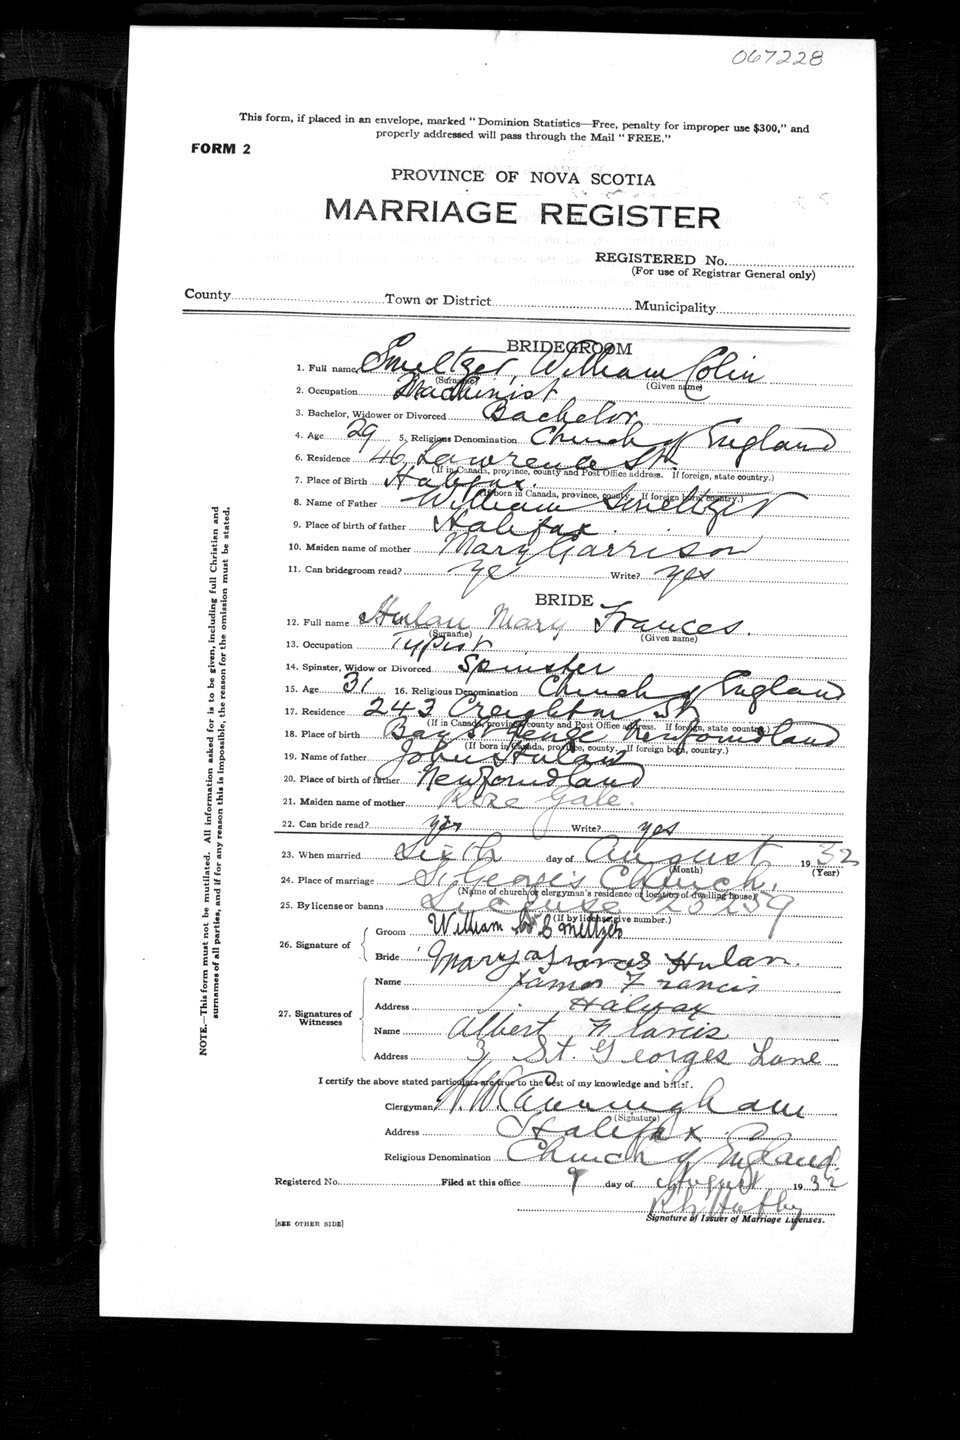 067228
This form, if placed in an envelope, marked "Dominion Statistics—Free, penalty for improper use $300," and
properly addressed will pass through the Mail "FREE."
FORM 2
PROVINCE OF NOVA SCOTIA
MARRIAGE REGISTER
REGISTERED No.
(For use of Registrar General only)
County Town or District Municipality
BRIDEGROOM
1. Full name Smeltzer, William Colin
(Surname) (Given name)
2. Occupation Machinist
3. Bachelor, Widower or Divorced Bachelor
4. Age 29 5. Religious Denomination Church of England
6. Residence 46 Lawrence St.
(If in Canada, province, county and Post Office address. If foreign, state country.)
7. Place of Birth Halifax.
(If born in Canada, province, county. If foreign born, country.)
8. Name of Father William Smeltzer
9. Place of birth of father Halifax.
10. Maiden name of mother Mary Garrison
11. Can bridegroom read? ye Write? yes
BRIDE
12. Full name Hulan Mary Frances.
(Surname) (Given name)
13. Occupation Typist
14. Spinster, Widow or Divorced Spinster
15. Age 31 16. Religious Denomination Church of England
17. Residence 243 Creighton St
(If in Canada, province, county and Post Office address. If foreign, state country.)
18. Place of birth Bay St. Newfoundland
(If born in Canada, province, county. If foreign born, country.)
19. Name of father John Hulan
20. Place of birth of father Newfoundland
21. Maiden name of mother Gale.
22. Can bride read? yes Write? yes
23. When married Sixth day of August 1932
(Month) (Year)
24. Place of marriage St George's Church,
(Name of church or clergyman's residence or location of dwelling house)
25. By license or banns License
(If by license, give number.)
26. Signature of
Groom William Smeltzer
Bride Mary Frances Hulan.
27. Signatures of Witnesses
Name James Francis
Address Halifax
Name Albert Francis
Address 3, St. Georges Lane
I certify the above stated particulars are true to the best of my knowledge and belief.
Clergyman H. W. Cunningham
(Signature)
Address Halifax
Religious Denomination Church of England.
Registered No. Filed at this office 9 day of August 1932
Signature of Issuer of Marriage Licenses.
[SEE OTHER SIDE]
NOTE.—This form must not be mutilated. All information asked for is to be given, including full Christian and
surnames of all parties, and if for any reason this is impossible, the reason for the omission must be stated.